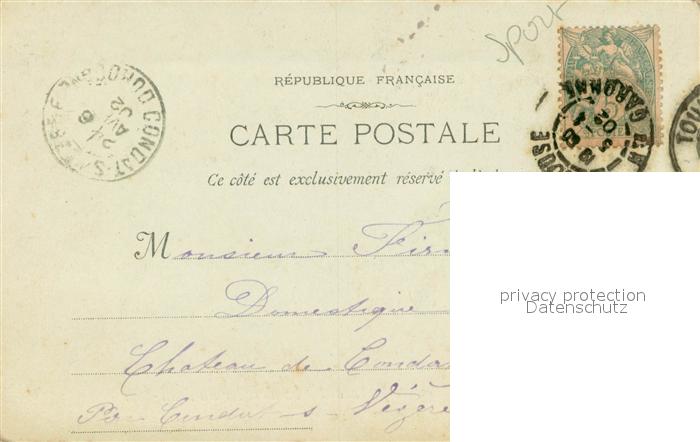 Sport
RÉPUBLIQUE FRANÇAISE
CARTE POSTALE
Ce côté est exclusivement réservé
CONDAT-S-VÉZÈRE DORDOGNE
6
AVR
02
GARONNE
Monsieur Fir
Domestique
Chateau de Conda
Par Condat - s - Vézère
privacy protection
Datenschutz